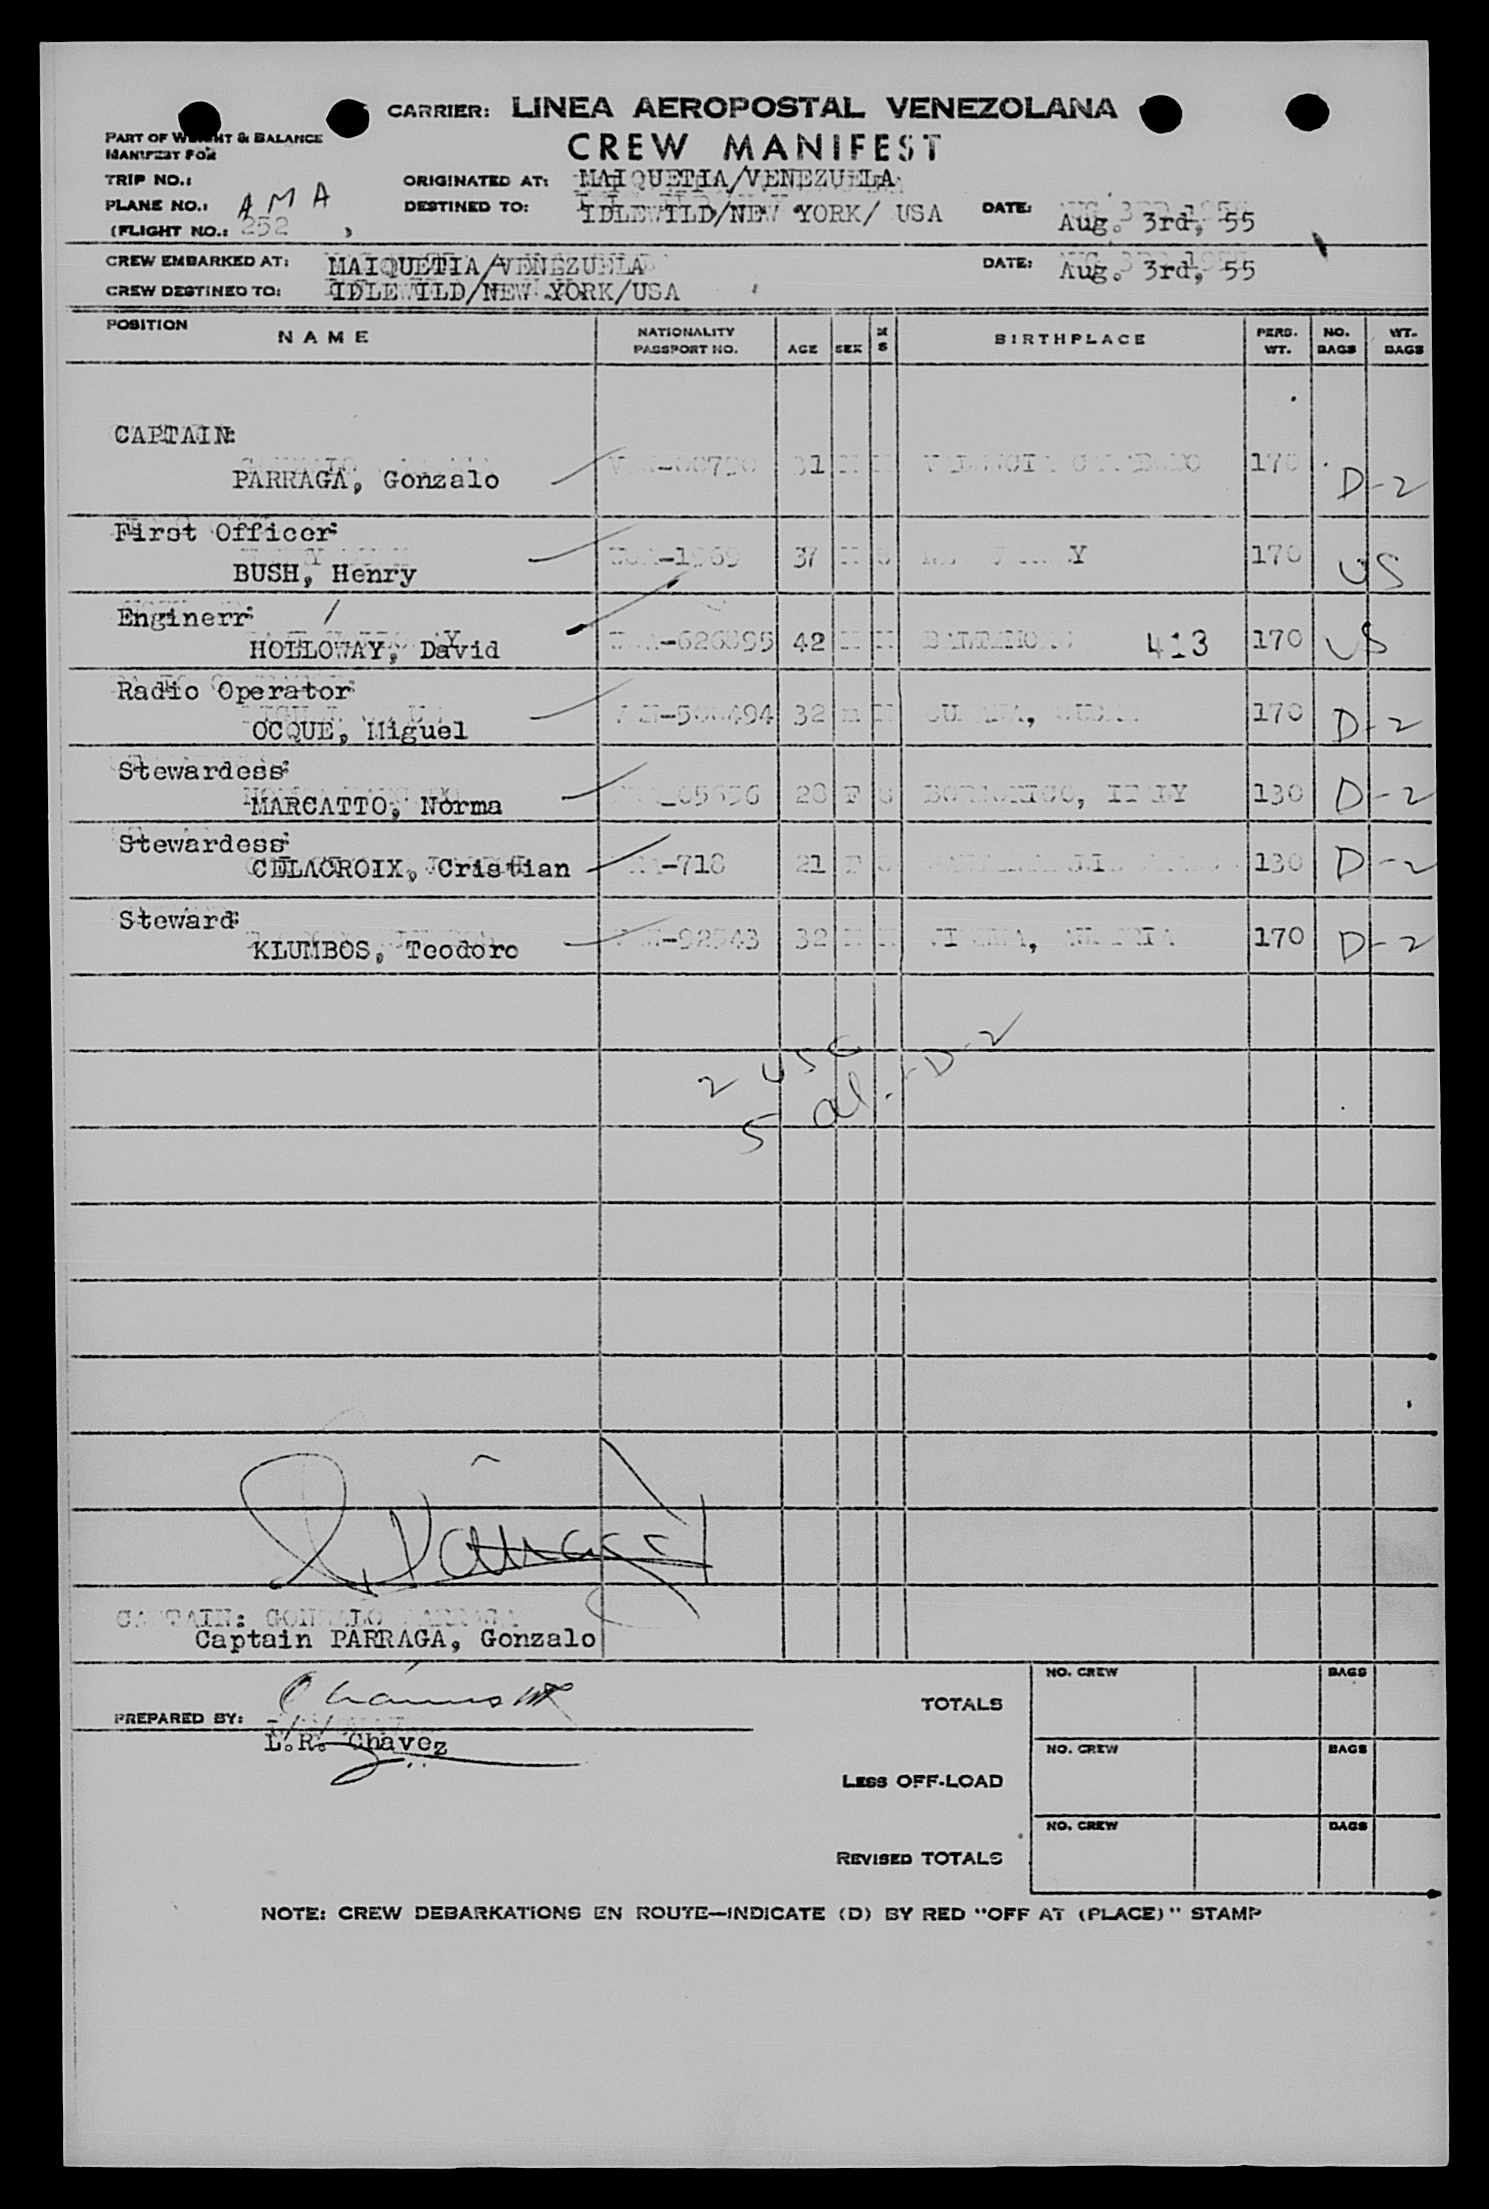 CARRIER: LINEA AEROPOSTAL VENEZOLANA
CREW MANIFEST
PART OF WEIGHT & BALANCE
MANIFEST FOR
TRIP NO.:
ORIGINATED AT: MAIQUETIA/VENEZUELA
PLANE NO.: AMA
DESTINED TO: IDLEWILD/NEW YORK/ USA DATE: Aug. 3rd, 55
(FLIGHT NO.: 252 )
CREW EMBARKED AT: MAIQUETIA/VENEZUELA DATE: Aug. 3rd, 55
CREW DESTINED TO: IDLEWILD/NEW YORK/USA
POSITION NAME NATIONALITY PASSPORT NO. AGE SEX M S BIRTHPLACE PERS. WT. NO. BAGS WT. BAGS
CAPTAIN:
PARRAGA, Gonzalo 31 170 D-2
First Officer:
BUSH, Henry 37 170 US
Enginerr:
HOLLOWAY, David 42 413 170 US
Radio Operator:
OCQUE, Miguel 32 m 170 D-2
Stewardess:
MARCATTO, Norma 28 F 130 D-2
Stewardess:
CELACROIX, Cristian -718 21 F 130 D-2
Steward:
KLUMBOS, Teodoro 32 170 D-2
2 USC
5 al.-D-2
Captain PARRAGA, Gonzalo
PREPARED BY:
L.R. Chavez
TOTALS NO. CREW BAGS
LESS OFF-LOAD NO. CREW BAGS
REVISED TOTALS NO. CREW BAGS
NOTE: CREW DEBARKATIONS EN ROUTE—INDICATE (D) BY RED "OFF AT (PLACE)" STAMP